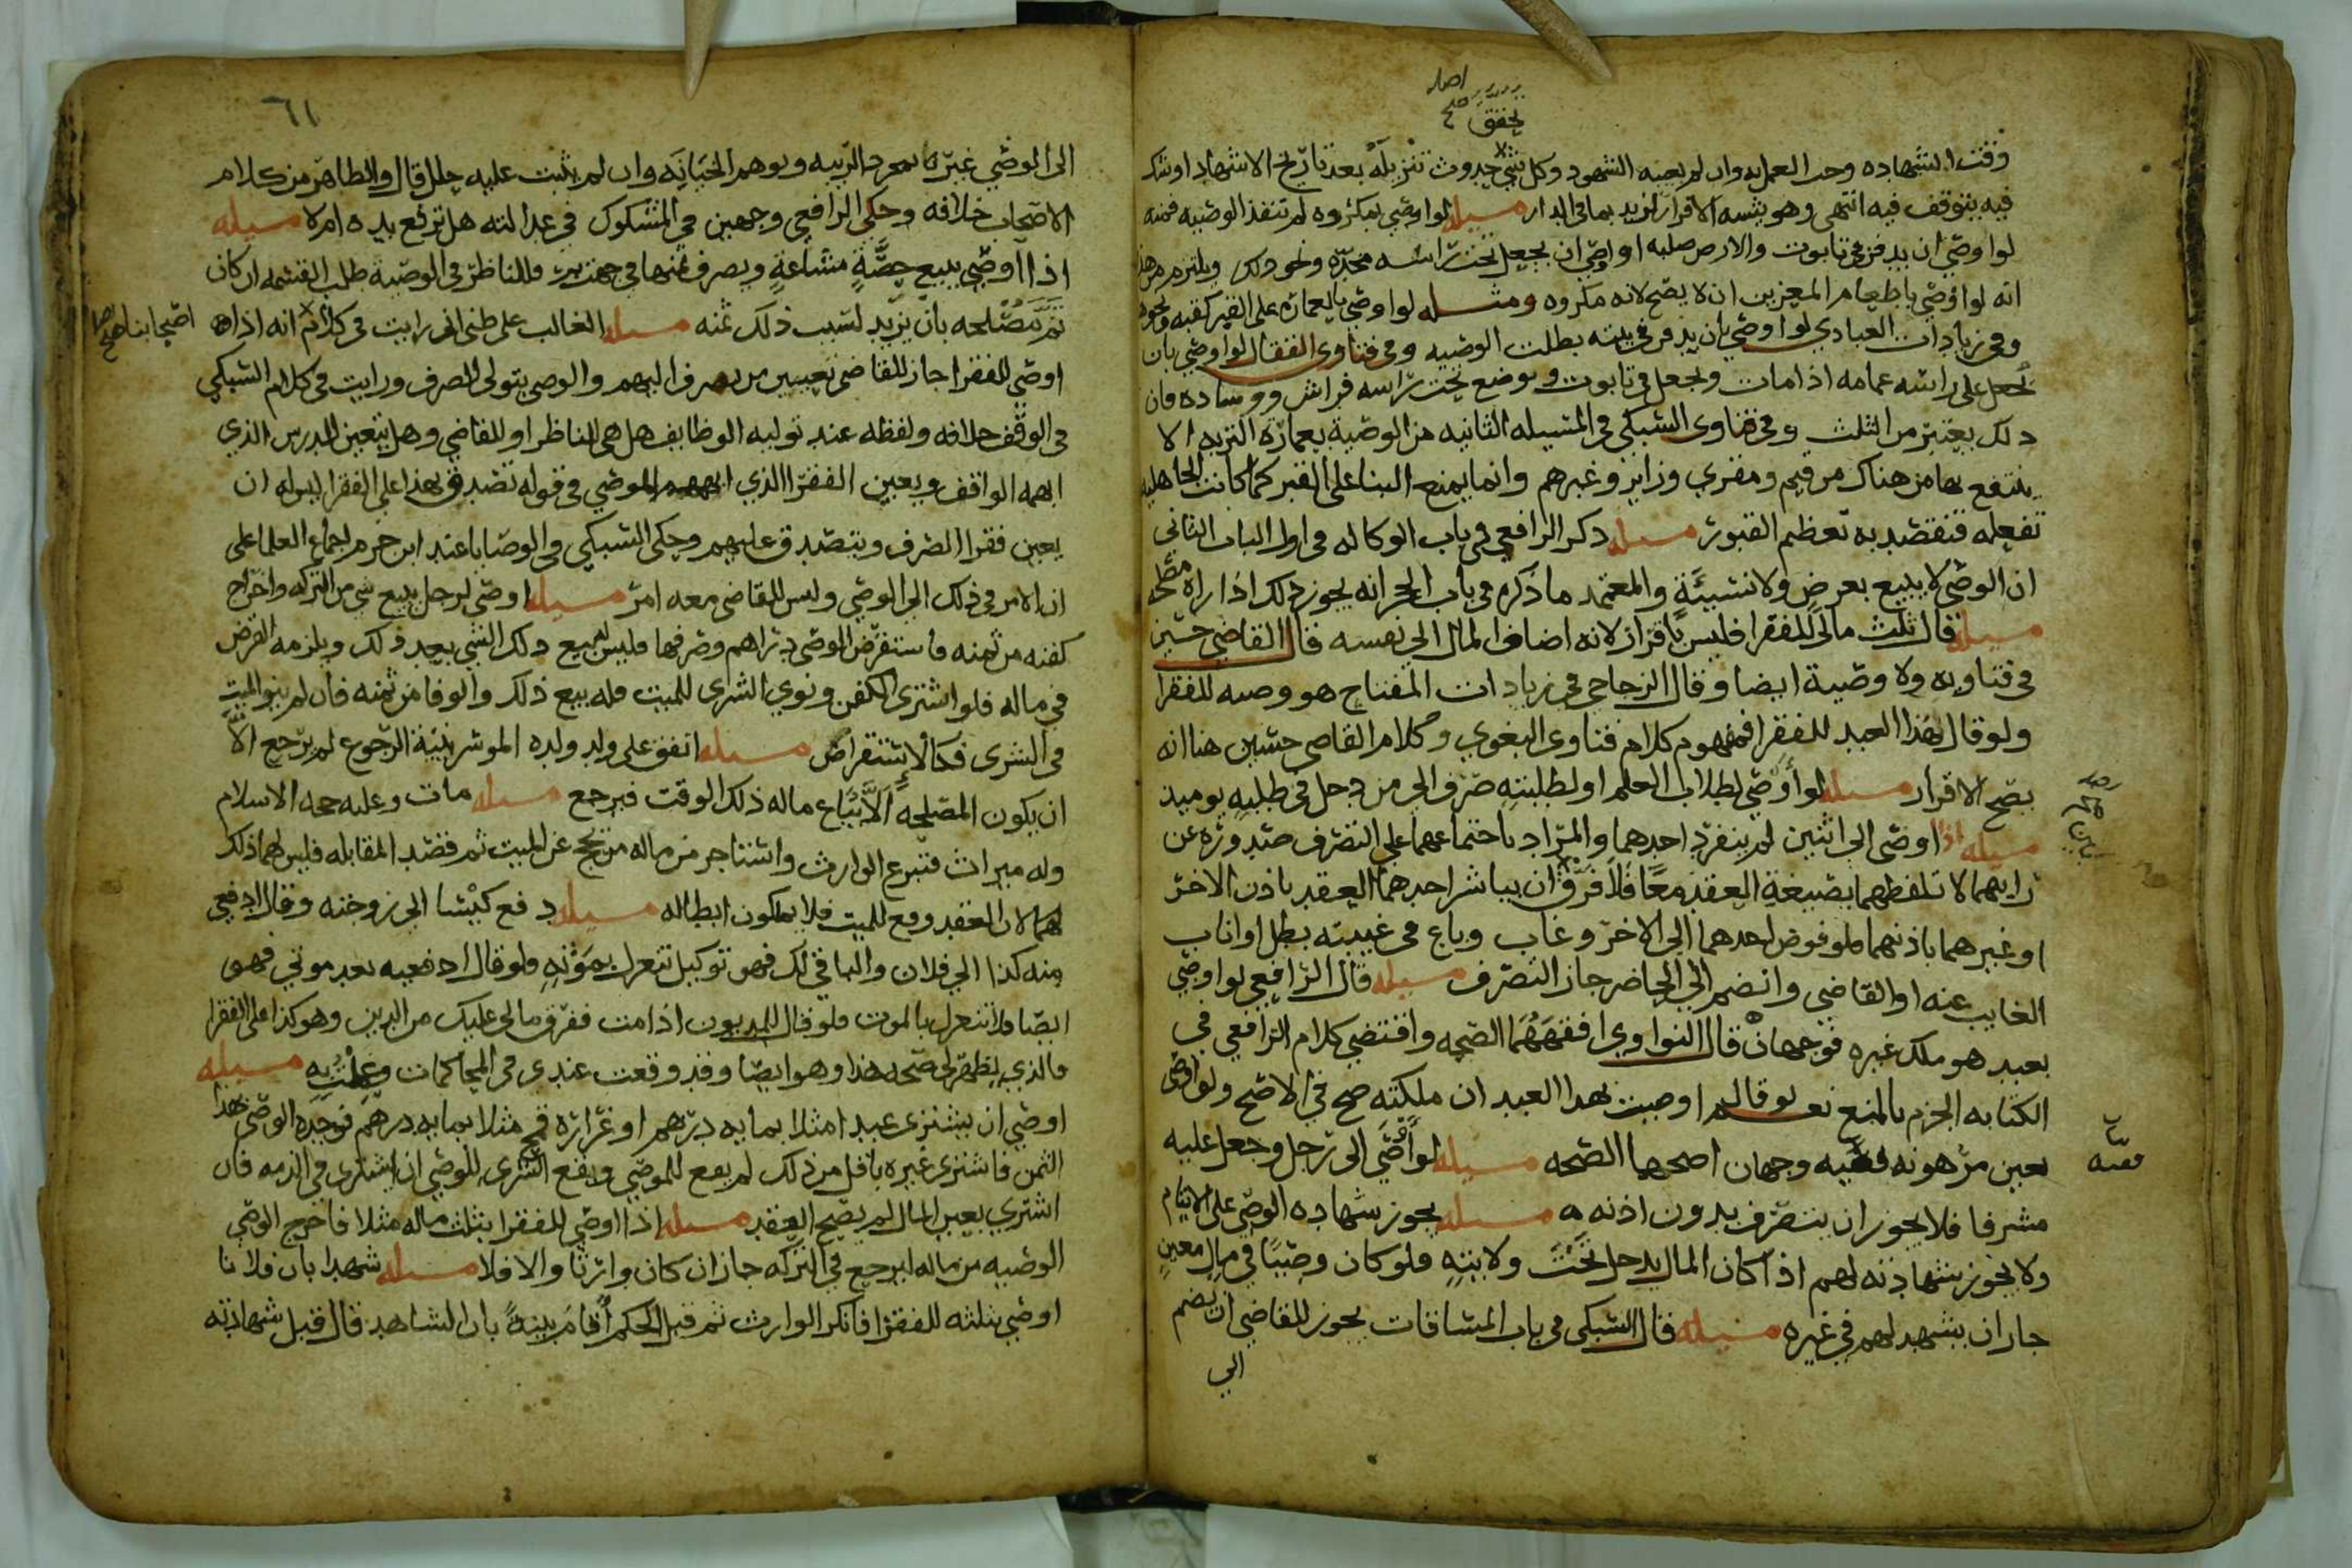 وقت الشهاده وجب العمل به وان لم يعينه الشهود وكل شي حدوث تنزيله بعد تاريخ الاشهاد اوشك
فيه يتوقف فيه انتهى وهو يشبه الاقرار لزيد بما في الدار مسيله لو اوصي بمكروه لم تنفذ الوصيه فمنه
لو اوصي ان يدفن في تابوت والارض صلبه او اوصي ان يجعل تحت راسه مخده ونحو ذلك ويلتزم من هذا
انه لو اوصي باطعام المعزين ان لا يصح لانه مكروه ومثله لو اوصي بالعماره على القبر كقبه ونحوه
وفي زيادات العبادي لو اوصي بان يدفن في بيته بطلت الوصيه وفي فتاوى القفال لو اوصي بان
يجعل على راسه عمامه اذا مات ويجعل في تابوت ويوضع تحت راسه فراش ووساده فان
ذلك يعتبر من الثلث وفي فتاوى السبكي في المسيله الثانيه من الوصية بعمارة التربه الا
ينتفع بها من هناك من قيم ومقري وزاير وغيرهم وانما يمنع البنا على القبر كما كانت الجاهليه
تفعله فتقصد به تعظم القبور مسيله ذكر الرافعي في باب الوكاله في اول الباب الثاني
ان الوصي لا يبيع بعرض ولا نسيئة والمعتمد ما ذكره في باب الحجر انه يجوز ذلك اذا راه مصلحه
مسيله قال ثلث مالي للفقرا فليس باقرار لانه اضاف المال الي نفسه قال القاضي حسين
في فتاويه ولا وصية ايضا وقال الزجاجي في زيادات المفتاح هو وصيه للفقرا
ولو قال هذا العبد للفقرا فمفهوم كلام فتاوى البغوي وكلام القاضي حسين هنا انه
يصح الاقرار مسيله لو أوصي لطلاب العلم او لطلبته صرف الى من دخل في طلبه يوميذ
مسيله اذا اوصي الى اثنين لم ينفرد احدهما والمراد باجتماعهما على التصرف صدوره عن
رايهما لا تلفظهما بصيغة العقد معا فلا فرق ان يباشر احدهما العقد باذن الاخر
او غيرهما باذنهما فلو فوض احدهما الى الاخر وغاب وباع في غيبته بطل او اناب
الغايب عنه او القاضي وانضم الى الحاضر جاز التصرف مسيله قال الرافعي لو اوصي
بعبد هو ملك غيره فوجهان قال النواوي افقههما الصحه واقتضي كلام الرافعي في
الكتابه الجزم بالمنع نعم لو قال اوصيت بهذا العبد ان ملكته صح في الاصح ولو اوصي
بعين مرهونه ففيه وجهان اصحهما الصحه مسيله لو أوصي الى رجل وجعل عليه
مشرفا فلا يجوز ان يتصرف بدون اذنه مسيله يجوز شهاده الوصي على الايتام
ولا يجوز شهادته لهم اذا كان المال يدخل تحت ولايته فلو كان وصيا في مال معين
جاز ان يشهد لهم في غيره مسيله قال السبكي في باب المساقات يجوز للقاضي ان يضم
الي
٦١
الى الوصي غيره بمجرد الريبه وتوهم الخيانه وان لم يثبت عليه خلل قال والظاهر من كلام
الاصحاب خلافه وحكي الرافعي وجهين في المشكوك في عدالته هل ترفع يده ام لا مسيله
اذا أوصي ببيع حصة مشاعة ويصرف ثمنها في جهة بر فللناظر في الوصية طلب القسمه ان كان
ثم مصلحه بان يزيد لسبب ذلك ثمنه مسيله الغالب على ظني اني رايت في كلام انه اذا
اوصي للفقرا جاز للقاضي تعيين من يصرف اليهم والوصي يتولى الصرف ورايت في كلام السبكي
في الوقف خلافه ولفظه عند توليه الوظايف هل هي للناظر او للقاضي وهل يتعين المدرس الذي
ابهمه الواقف ويعين الفقرا الذي ابهمهم الموصي في قوله تصدق بهذا على الفقرا ليوله ان
يعين فقرا الصرف ويتصدق عليهم وحكى السبكي في الوصايا عند ابن حزم اجماع العلما على
ان الامر في ذلك الى الوصي وليس للقاضي معه امر مسيله اوصي لرجل ببيع شي من التركه واخراج
كفنه من ثمنه فاستقرض الوصي دراهم وصرفها فليس له بيع ذلك الشي بعد ذلك ويلزمه القرض
في ماله فلو اشترى الكفن ونوى الشرى للميت فله بيع ذلك والوفا من ثمنه فان لم ينو الميت
في الشرى فكالاستقراض مسيله انفق على ولد ولده الموسر بنية الرجوع لم يرجع الا
ان يكون المصلحه الا يباع ماله ذلك الوقت فيرجع مسيله مات وعليه حجه الاسلام
وله ميراث فتبرع الوارث واستاجر من ماله من يحج عن الميت ثم قصد المقابله فليس لهما ذلك
لان العقد وقع للميت فلا يملكون ابطاله مسيله دفع كيسا الى زوجته وقال ادفعي
منه كذا الي فلان والباقي لك فهو توكيل تنعزل بموته فلو قال ادفعيه بعد موتي فهو
ايصا فلا تنعزل بالموت فلو قال للمديون اذا مت ففرق مالي عليك من الدين وهو كذا على الفقرا
فالذي يظهر لي صحه هذا وهو ايصا وقد وقعت عندي في المحاكمات وعملت به مسيله
اوصي ان يشترى عبد امثلا بمايه درهم او غراره قمح مثلا بمايه درهم فوجد الوصي هذا
الثمن فاشترى غيره باقل من ذلك لم يقع للموصي ويقع الشرى للوصي ان اشترى في الذمه فان
اشتري بعين المال لم يصح العقد مسيله اذا اوصي للفقرا بثلث ماله مثلا فاخرج الوصي
الوصيه من ماله ليرجع في التركه جاز ان كان وارثا والا فلا مسيله شهدا بان فلانا
اوصي بثلثه للفقرا فانكر الوارث ثم قبل الحكم أقام بينة بان الشاهد قال قبل شهادته